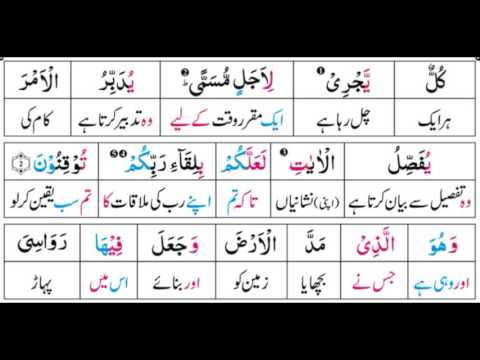 كُلٌّ يَّجْرِیْ ① لِاَجَلٍ مُّسَمًّی ② ؕ یُدَبِّرُ الْاَمْرَ
ہر ایک چل رہا ہے ایک مقرر وقت کے لیے وہ تدبیر کرتا ہے کام کی
یُفَصِّلُ الْاٰیٰتِ لَعَلَّكُمْ بِلِقَآءِ رَبِّكُمْ تُوْقِنُوْنَ ②
وہ تفصیل سے بیان کرتا ہے (اپنی) نشانیاں تاکہ تم اپنے رب کی ملاقات کا تم سب یقین کر لو
وَهُوَ الَّذِیْ مَدَّ الْاَرْضَ وَجَعَلَ فِیْهَا رَوَاسِیَ
اور وہی ہے جس نے بچھایا زمین کو اور بنائے اس میں پہاڑ